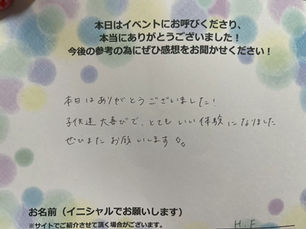 本日はイベントにお呼びくださり、
本当にありがとうございました！
今後の参考の為にぜひ感想をお聞かせください！
本日はありがとうございました！
子供達大喜びで、とてもいい体験になりました
ぜひまたお願いします。
お名前（イニシャルでお願いします）
※サイトでご紹介させて頂く場合がございます。
H.F